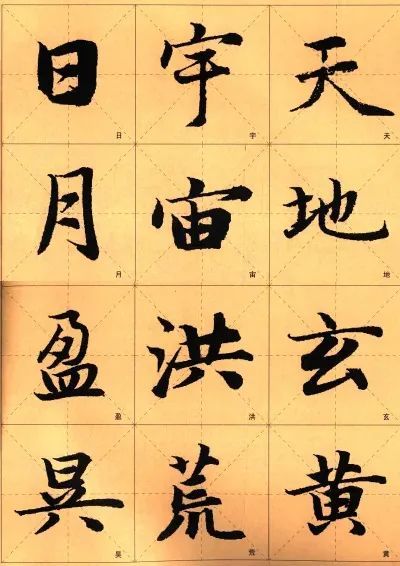 天地玄黄
宇宙洪荒
日月盈昃
天
地
玄
黄
宇
宙
洪
荒
日
月
盈